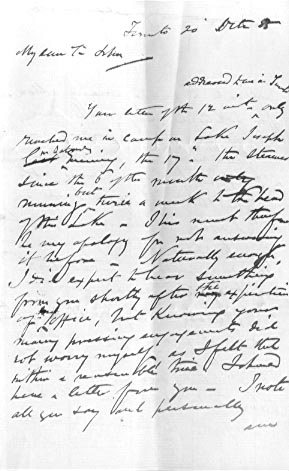 Toronto 20 Octr
My dear Sir John
addressed ^ here in
Your letter of the 12 inst ^ only
reached me in camp on Lake Joseph
on Saturday
evening, the 17th the steamer
since the 6 of the month
running but twice a week to the head
of the Lake - This must therefore
be my apology for not answering
it before - Naturally enough
I did expect to hear something
from you shortly after the expiration
of office, but knowing your
many pressing engagements did
not worry myself as I felt that
within a reasonable time I should
have a letter from you - I note
all you say and personally
am